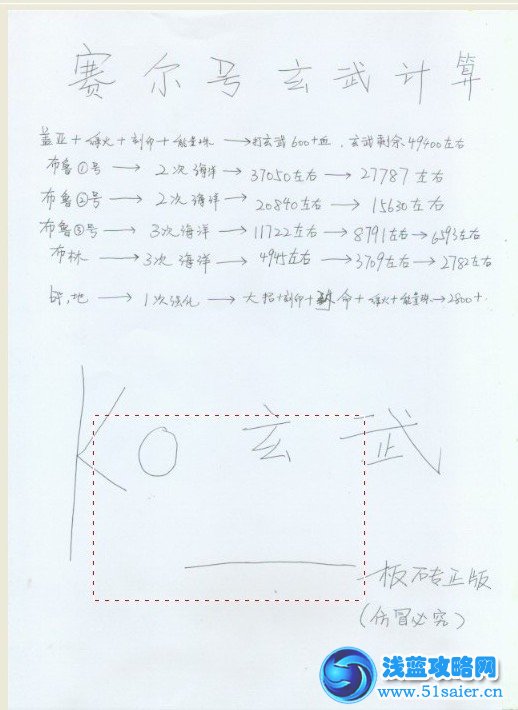 赛尔号玄武计算
盖亚+烽火+刻印+能量珠→打玄武600+血,玄武剩余49400左右
布鲁①号→2次海洋→37050左右→27787左右
布鲁②号→2次海洋→20840左右→15630左右
布鲁③号→3次海洋→11722左右→8791左右→6593左右
布林→3次海洋→4945左右→3709左右→2782左右
地→1次强化→大招+刻印+命+烽火+能量珠→2800+
KO玄武
—板砖正版
(仿冒必究)
浅蓝攻略网
www.51saier.cn